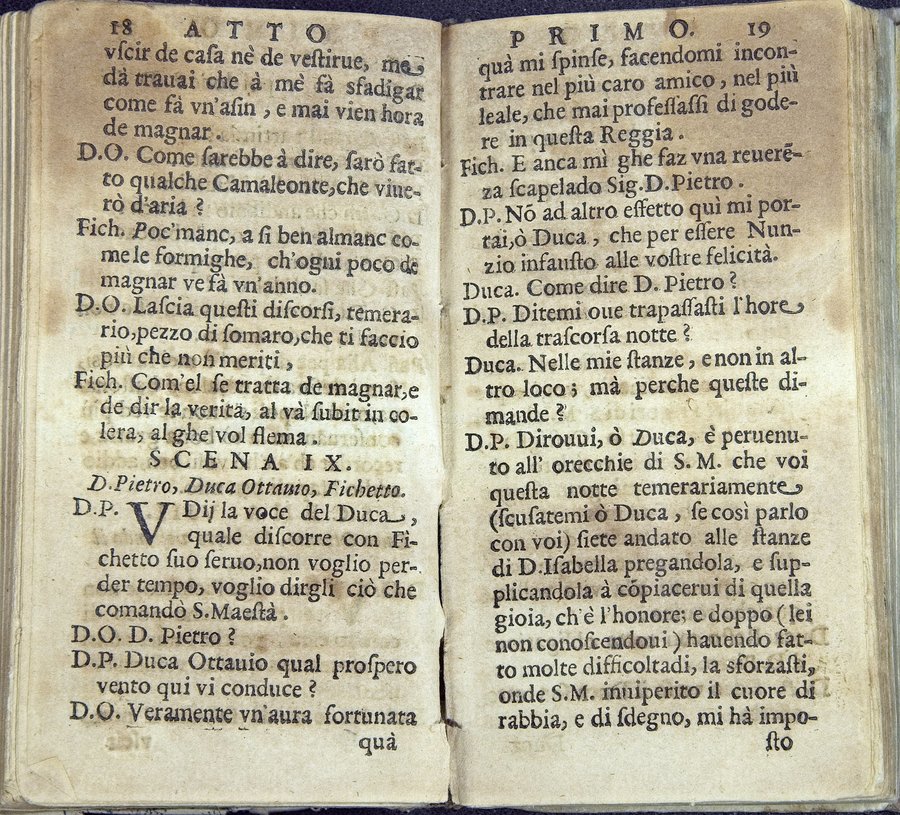 18 ATTO
vſcir de caſa nè de veſtirue, me
dà trauai che à mè fà sfadigar
come fà vn'aſin, e mai vien hora
de magnar.
D.O. Come ſarebbe à dire, ſarò fat-
to qualche Camaleonte, che viue-
rò d'aria ?
Fich. Poc'manc, a ſi ben almanc co-
me le formighe, ch'ogni poco de
magnar ve fà vn'anno.
D.O. Laſcia queſti diſcorſi, temera-
rio, pezzo di ſomaro, che ti faccio
più che non meriti,
Fich. Com'el ſe tratta de magnar, e
de dir la verità, al và ſubit in co-
lera, al ghe vol flema.
SCENA IX.
D.Pietro, Duca Ottauio, Fichetto.
D.P. VDij la voce del Duca,
quale diſcorre con Fi-
chetto ſuo ſeruo, non voglio per-
der tempo, voglio dirgli ciò che
comandò S.Maeſtà.
D.O. D. Pietro ?
D.P. Duca Ottauio qual proſpero
vento qui vi conduce ?
D.O. Veramente vn'aura fortunata
quà
PRIMO. 19
quà mi ſpinſe, facendomi incon-
trare nel più caro amico, nel più
leale, che mai profeſſaſſi di gode-
re in queſta Reggia.
Fich. E anca mì ghe faz vna reuerẽ-
za ſcapelado Sig.D.Pietro.
D.P. Nõ ad altro effetto quì mi por-
tai, ò Duca, che per eſſere Nun-
zio infauſto alle voſtre felicità.
Duca. Come dire D. Pietro ?
D.P. Ditemi oue trapaſſaſti l'hore
della traſcorſa notte ?
Duca. Nelle mie ſtanze, e non in al-
tro loco; mà perche queſte di-
mande ?
D.P. Dirouui, ò Duca, è peruenu-
to all' orecchie di S. M. che voi
queſta notte temerariamente
(ſcuſatemi ò Duca, ſe così parlo
con voi) ſiete andato alle ſtanze
di D.Iſabella pregandola, e ſup-
plicandola à cõpiacerui di quella
gioia, ch'è l'honore; e doppo (lei
non conoſcendoui) hauendo fat-
to molte difficoltadi, la sforzaſti,
onde S.M. inuiperito il cuore di
rabbia, e di ſdegno, mi hà impo-
ſto